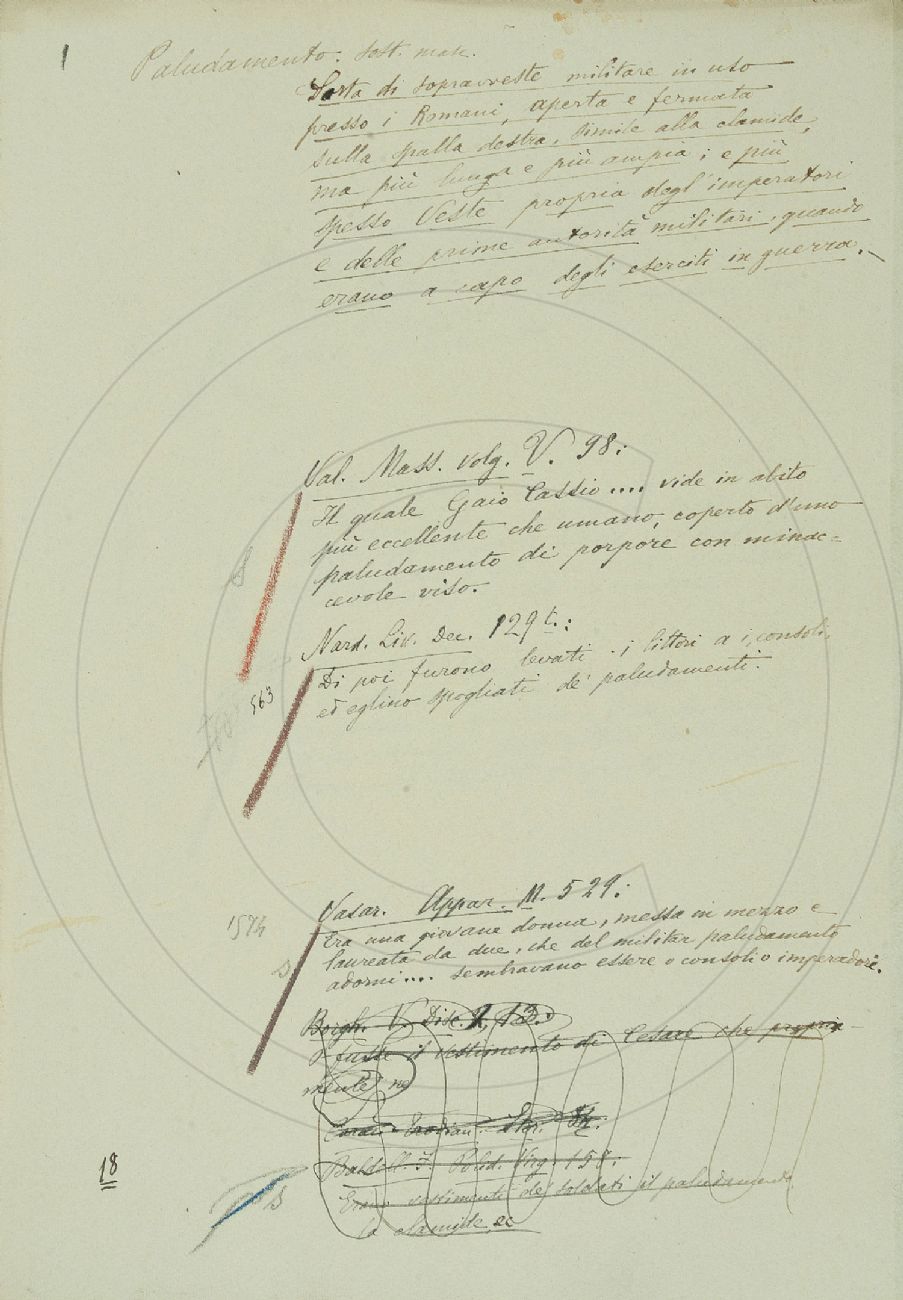 1
Paludamento. Sost. masc.
Sorta di sopravveste militare in uso
presso i Romani, aperta e fermata
sulla spalla destra, simile alla clamide,
ma più lunga e più ampia; e più
spesso Veste propria degl'imperatori
e delle prime autorità militari, quando
erano a capo degli eserciti in guerra.
Val. Mass. volg. V. 98:
Il quale Gaio Cassio .... vide in abito
più eccellente che umano, coperto d'uno
paludamento di porpore con minac=
cevole viso.
Nard. Liv. Dec. 129 t.:
Di poi furono levati i littori a i consoli,
ed eglino spogliati de' paludamenti.
563
1574
Vasar. Appar. M. 529:
Era una giovane donna, messa in mezzo e
laureata da due, che del militar paludamento
adorni.... sembravano essere o consoli o imperadori.
S
Borgh. V. Disc. 1, 13:
O fusse il vestimento di Cesare che propria-
mente
Baldell. F. Polid. Virg. 158:
Erano vestimenti de' soldati il paludamento
la clamide, ec
18
S